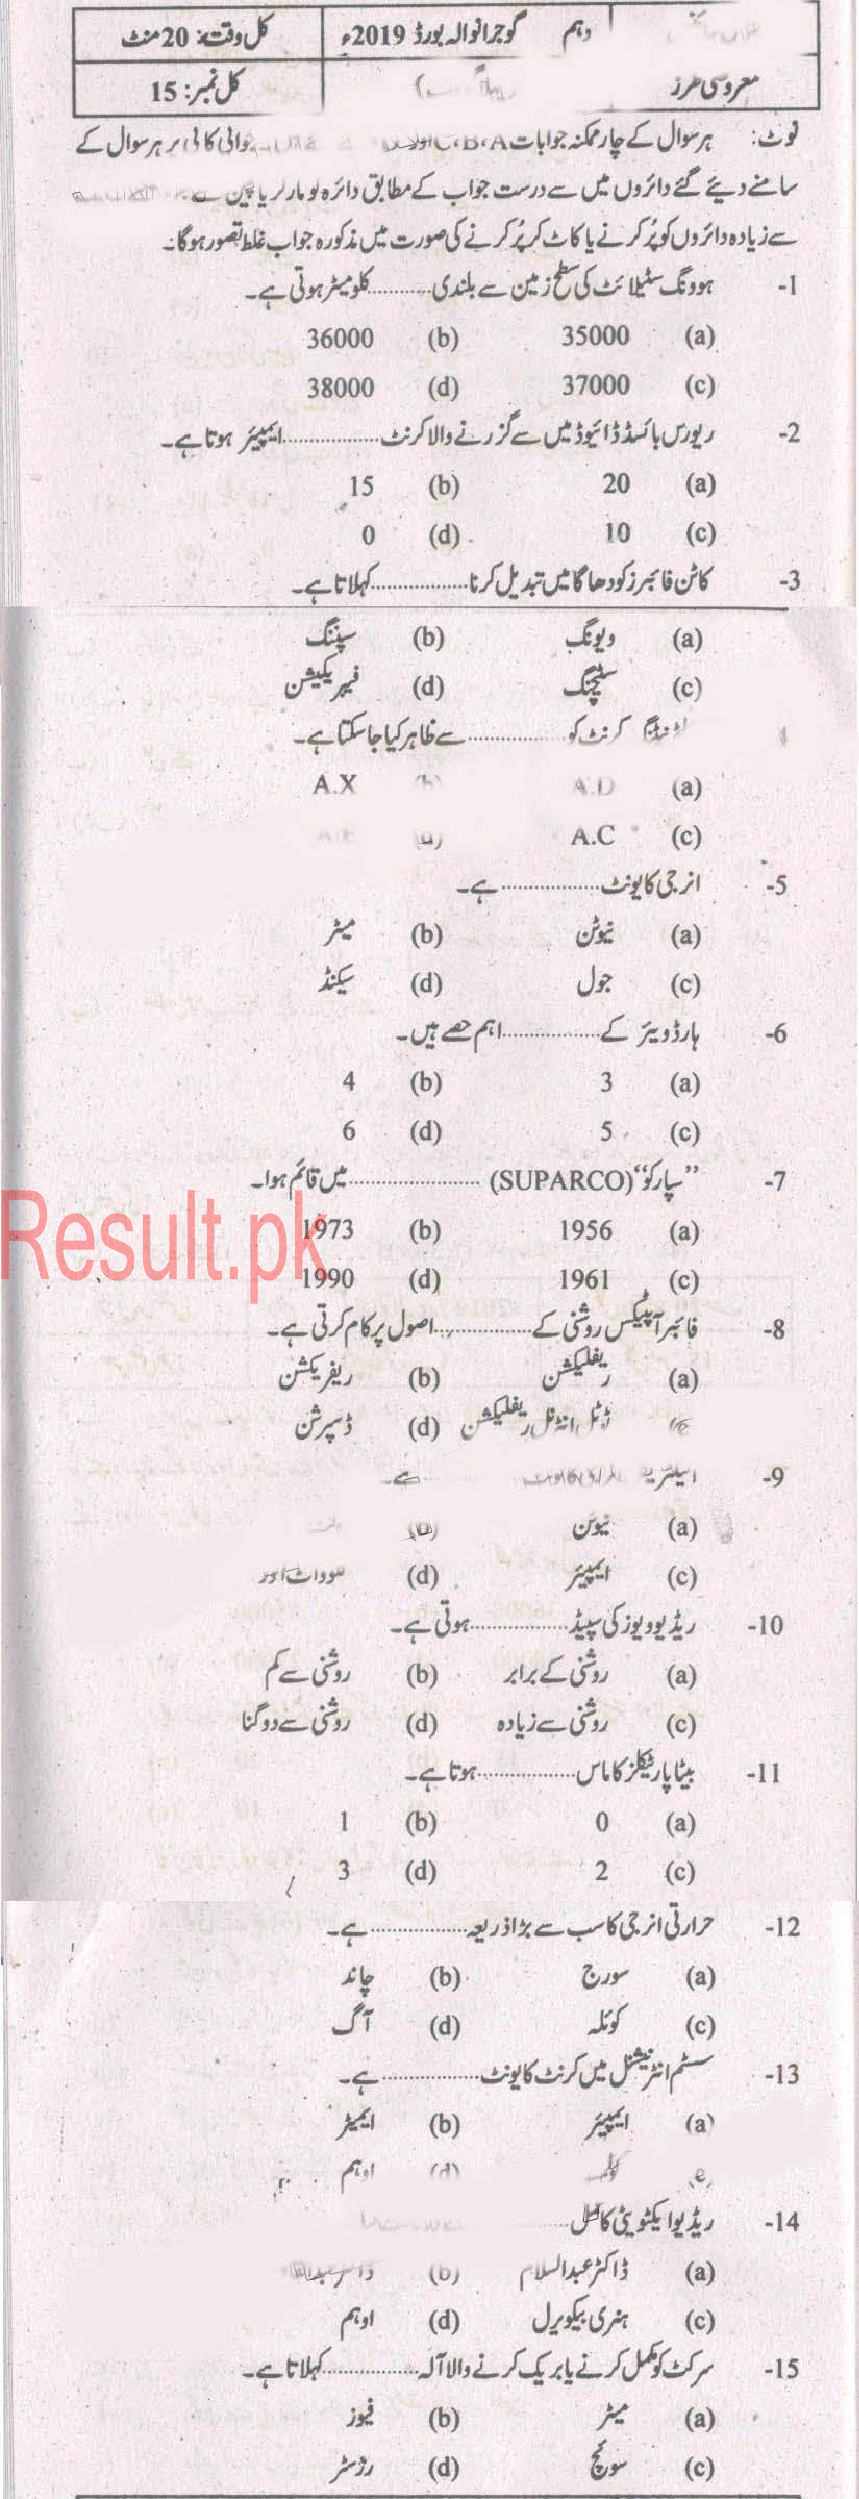 دہم گوجرانوالہ بورڈ 2019ء کل وقت: 20 منٹ
معروضی طرز کل نمبر: 15
نوٹ: ہر سوال کے چار ممکنہ جوابات C، B، A ہر سوال کے
سامنے دیئے گئے دائروں میں سے درست جواب کے مطابق دائرہ
سے زیادہ دائروں کو پُر کرنے یا کاٹ کر پُر کرنے کی صورت میں مذکورہ جواب غلط تصور ہوگا۔
-1 ہوونگ سٹیلائٹ کی سطح زمین سے بلندی ............ کلومیٹر ہوتی ہے۔
(a) 35000 (b) 36000
(c) 37000 (d) 38000
-2 ریورس بائسڈ ڈائیوڈ میں سے گزرنے والا کرنٹ .................. ایمپیئر ہوتا ہے۔
(a) 20 (b) 15
(c) 10 (d) 0
-3 کاٹن فائبرز کو دھاگا میں تبدیل کرنا .................. کہلاتا ہے۔
(a) ویونگ (b) سپننگ
(c) سٹچنگ (d) فیبریکیشن
کرنٹ کو .................. سے ظاہر کیا جا سکتا ہے۔
(a) A.D (b) A.X
(c) A.C (d)
-5 انرجی کا یونٹ .................. ہے۔
(a) نیوٹن (b) میٹر
(c) جول (d) سیکنڈ
-6 ہارڈ ویئر کے .................. اہم حصے ہیں۔
(a) 3 (b) 4
(c) 5 (d) 6
-7 ”سپارکو“ (SUPARCO) .................. میں قائم ہوا۔
(a) 1956 (b) 1973
Result.pk
(c) 1961 (d) 1990
-8 فائبر آپٹیکس روشنی کے .................. اصول پر کام کرتی ہے۔
(a) ریفلیکشن (b) ریفریکشن
ٹوٹل انٹرنل ریفلیکشن (d) ڈسپرشن
-9 ہے۔
(a) نیوٹن (b)
(c) ایمپیئر (d)
-10 ریڈیو ویوز کی سپیڈ .................. ہوتی ہے۔
(a) روشنی کے برابر (b) روشنی سے کم
(c) روشنی سے زیادہ (d) روشنی سے دوگنا
-11 بیٹا پارٹیکلز کا ماس .................. ہوتا ہے۔
(a) 0 (b) 1
(c) 2 (d) 3
-12 حرارتی انرجی کا سب سے بڑا ذریعہ .................. ہے۔
(a) سورج (b) چاند
(c) کوئلہ (d) آگ
-13 سسٹم انٹرنیشنل میں کرنٹ کا یونٹ .................. ہے۔
(a) ایمپیئر (b) ایمیٹر
(d) اوہم
-14 ریڈیو ایکٹویٹی کا
(a) ڈاکٹر عبدالسلام (b)
(c) ہنری بیکویرل (d) اوہم
-15 سرکٹ کو مکمل کرنے یا بریک کرنے والا آلہ .................. کہلاتا ہے۔
(a) میٹر (b) فیوز
(c) سوئچ (d) رزسٹر